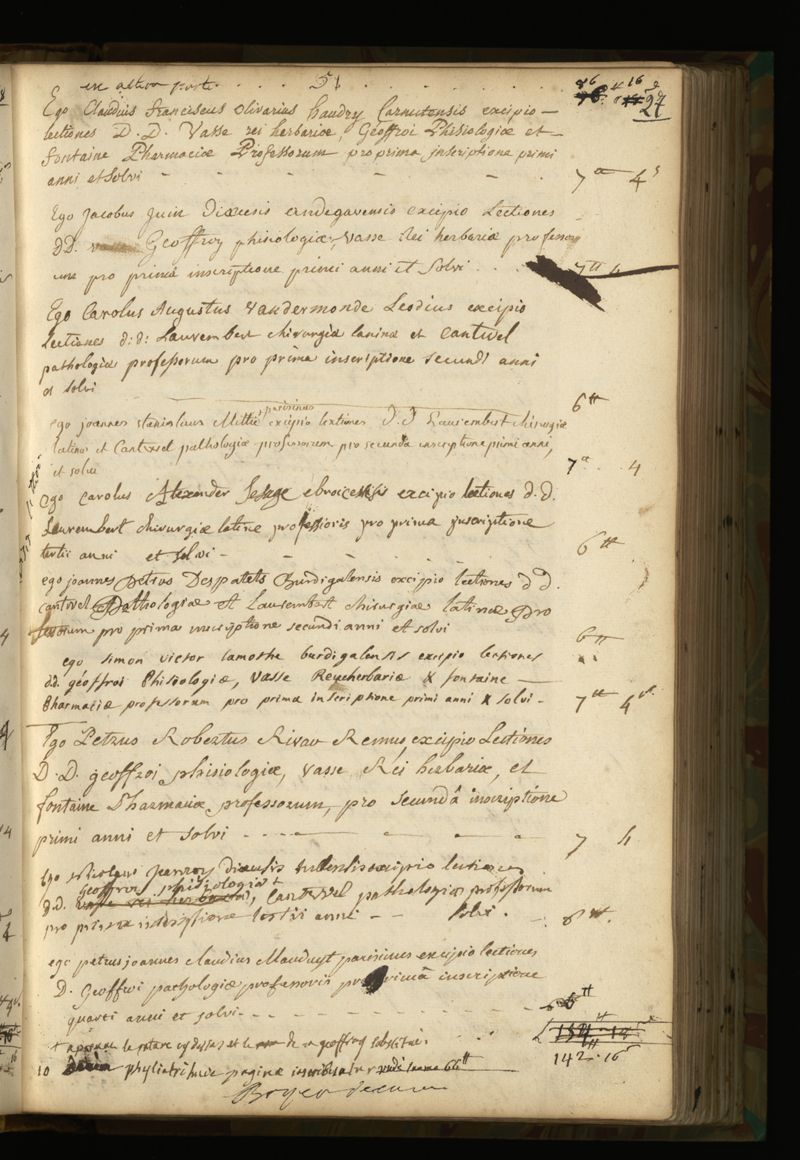 ex altera parte . . . 51
Ego Claudius Franciscus Olivarius baudry Carnutensis excipio
lectiones D. D. Vasse rei herbariæ, Geoffroi Phisiologiæ et
fontaine Pharmaciæ Professorum pro prima inscriptione primi
anni et solvi - - - - 7 4
Ego Jacobus Juin Diœcesis andegavensis excipio Lectiones
DD. Geoffroy phisiologiæ, vasse Rei herbariæ professor
um pro prima inscriptione primi anni et Solvi . . 7 4
Ego Carolus Augustus Vandermonde Leodius excipio
Lectiones d: d: Laurembert chirurgiæ latinæ et Cantwel
pathologiæ professorum pro prima inscriptione secundi anni
et solvi 6
ego joannes stanislaus Mittié + parisinus excipio lectiones D. D Laurembert chirurgiæ
latinæ et Cantwel pathologiæ professorum pro secunda inscriptione primi anni,
et solvi 7 4
Ego Carolus Alexander Lesage ebroicensis excipio lectiones d. d.
Laurembert chirurgiæ latinæ professoris pro prima inscriptione
tertii anni et solvi - 6
ego joannes Petrus Despatets Burdigalensis excipio lectiones d d.
cantwel Pathologiæ et Laurembert chirurgiæ latinæ Pro
fessorum pro prima inscriptione secundi anni et solvi 6
ego simon victor lamothe burdigalensis excipio lectiones
d.d. géoffroi Phisiologiæ, Vasse Rei herbariæ & fontaine
Pharmaciæ professorum pro prima inscriptione primi anni & solvi - 7 4
Ego Petrus Robertus Rivau Remus, excipio Lectiones
D. D. geoffroi phisiologiæ, vasse Rei herbariæ, et
fontaine Pharmaciæ professorum, pro secundâ inscriptione
primi anni et solvi - - - 7 4
Ego Nicolaus Jeanroy Diœcesis Tullensis excipio lectiones
geoffroy phisiologiæ +
d.d. vasse rei herbariæ, Cantwel pathologiæ professorum
pro prima inscriptione tertii anni - - solvi . 6
ego petrus joannes claudius Mauduyt parisinus excipio lectiones
D. Geoffroi pathologiæ professoris pro primâ inscriptione
quarti anni et solvi - - - 6
142 . 16
+ approuvé la rature cy dessus et le de m geoffroy substitué.
10 philiatri hucce paginæ inscribuntur
Boyer decanus